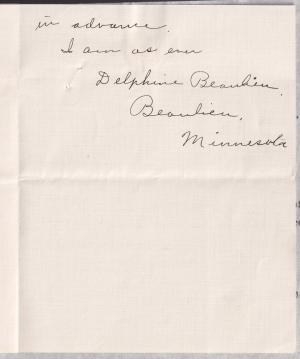 in advance.
I am as ever
Delphine Beaulieu,
Beaulieu,
Minnesota